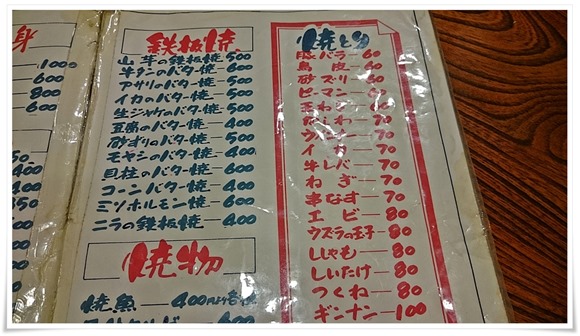 身
1000
600
800
600
鉄板焼
山芋の鉄板焼 500
牛タンのバター焼 600
アサリのバター焼 500
イカのバター焼 500
生ジャケのバター焼 500
豆腐のバター焼 400
砂ずりのバター焼 500
モヤシのバター焼 400
貝柱のバター焼 600
コーンバター焼 400
ミソホルモン焼 600
ニラの鉄板焼 400
焼物
焼魚 400円
焼とり
豚バラ 60
鳥皮 60
砂ズリ 60
ピーマン 60
70
70
イカ 70
牛レバ 70
ねぎ 70
串なす 70
エビ 80
ウズラの玉子 80
ししゃも 80
しいたけ 80
つくね 80
ギンナン 100